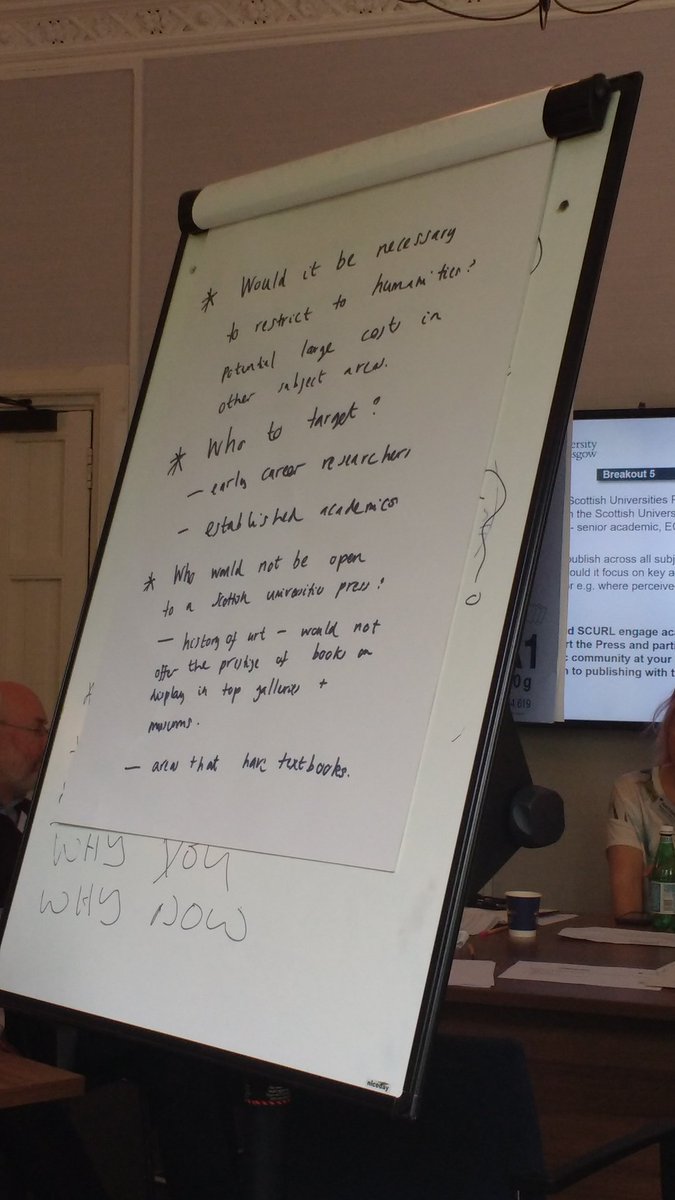 * Would it be necessary
to restrict to humanities?
potential large costs in
other subject areas.
* Who to target?
- early career researchers
- established academics
* Who would not be open
to a Scottish universities press?
- history of art - would not
offer the prestige of books on
display in top galleries +
museums.
- areas that have textbooks.
WHY YOU
WHY NOW
niceday
ersity
sgow
Breakout 5
Scottish Universities P
n the Scottish Univers
- senior academic, EC
publish across all subj
ould it focus on key a
r e.g. where perceive
d SCURL engage aca
rt the Press and parti
c community at your
n to publishing with t
A1
0g
4 619